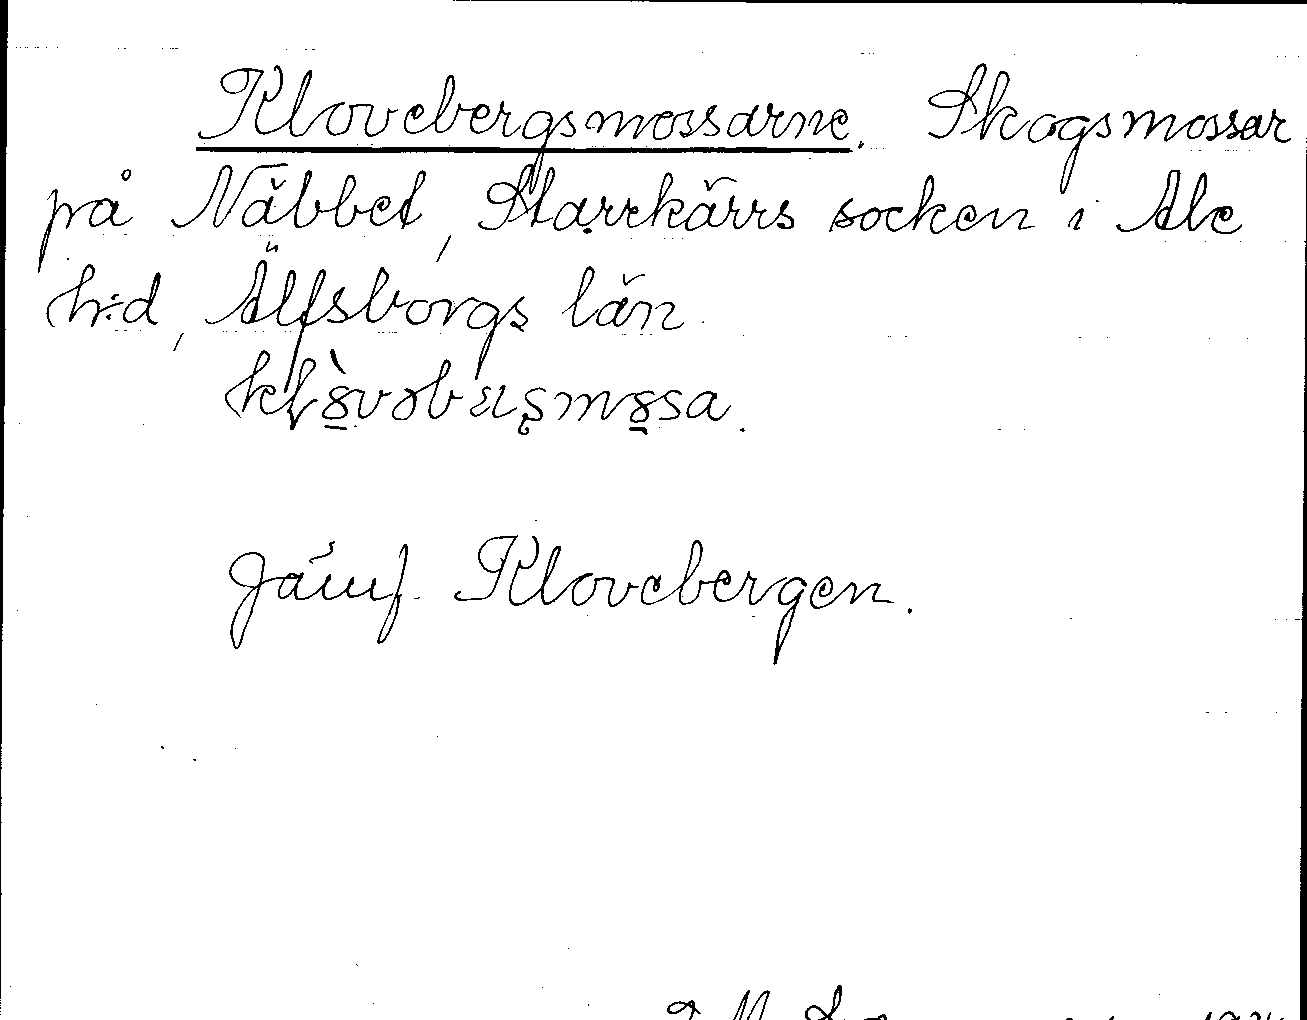 Klovebergsmossarne. Skogsmossar
på Näbbet, Starrkärrs socken i Ale
h:d, Älfsborgs län.
Jämf. Klovebergen.